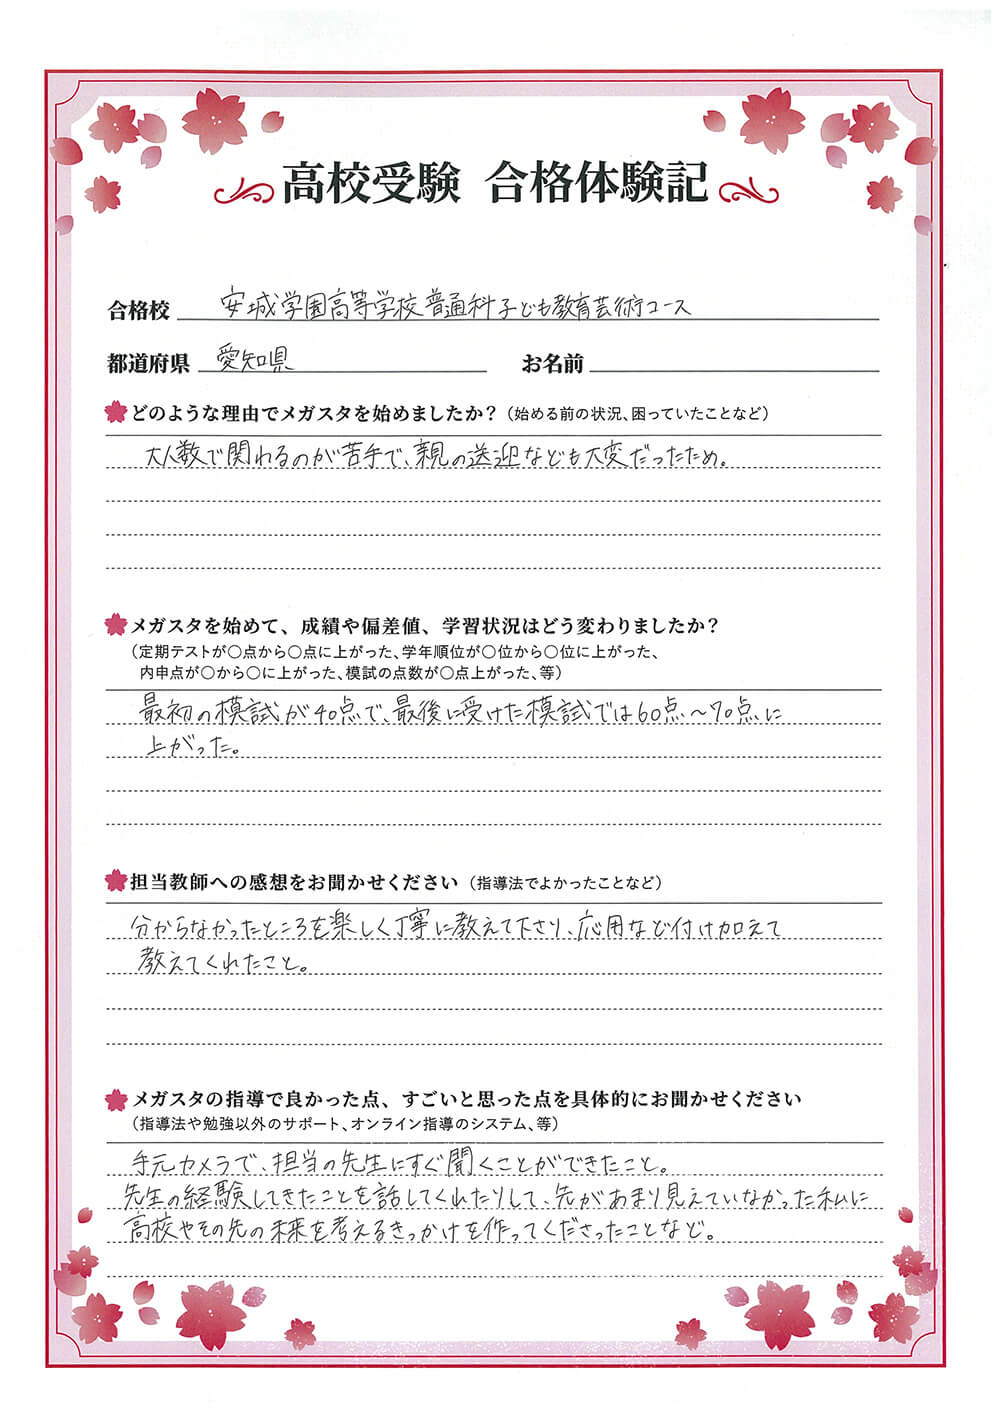 高校受験 合格体験記
合格校 安城学園高等学校普通科子ども教育芸術コース
都道府県 愛知県 お名前
どのような理由でメガスタを始めましたか？（始める前の状況、困っていたことなど）
大人数で関わるのが苦手で、親の送迎なども大変だったため。
メガスタを始めて、成績や偏差値、学習状況はどう変わりましたか？
（定期テストが〇点から〇点に上がった、学年順位が〇位から〇位に上がった、
内申点が〇から〇に上がった、模試の点数が〇点上がった、等）
最初の模試が40点で、最後に受けた模試では60点～70点に
上がった。
担当教師への感想をお聞かせください（指導法でよかったことなど）
分からなかったところを楽しく丁寧に教えて下さり、応用など付け加えて
教えてくれたこと。
メガスタの指導で良かった点、すごいと思った点を具体的にお聞かせください
（指導法や勉強以外のサポート、オンライン指導のシステム、等）
手元カメラで、担当の先生にすぐ聞くことができたこと。
先生の経験してきたことを話してくれたりして、先があまり見えていなかった私に
高校やその先の未来を考えるきっかけを作ってくださったことなど。